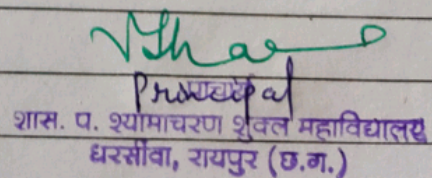 Principal
शास. प. श्यामाचरण शुक्ल महाविद्यालय
धरसीवा, रायपुर (छ.ग.)